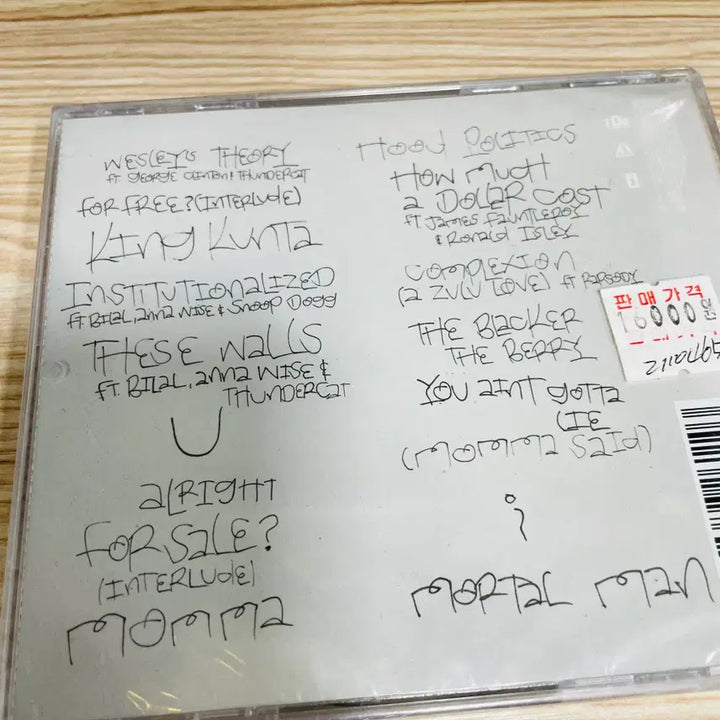 WESLEY'S THEORY
ft. GEORGE CLINTON & THUNDERCAT
FOR FREE? (INTERLUDE)
KING KUNTA
INSTITUTIONALIZED
ft BILAL, anna WISE & SNOOP DOGG
THESE WALLS
ft. BILAL, anna WISE &
THUNDERCAT
U
ALRIGHT
FOR SALE?
(INTERLUDE)
MOMMA
HOOD POLITICS
HOW MUCH
A DOLLAR COST
ft. JAMES FAUNTLEROY
& RONALD ISLEY
COMPLEXION
(A ZULU LOVE) ft RAPSODY
THE BLACKER
THE BERRY
YOU AINT GOTTA
LIE
(MOMMA SAID)
i
MORTAL MAN
TDE
판매가격
16000원